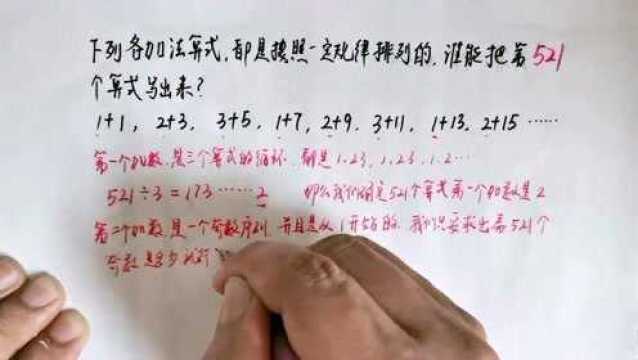 下列各加法算式,都是按照一定规律排列的,谁能把第521
个算式写出来?
1+1, 2+3, 3+5, 1+7, 2+9, 3+11, 1+13, 2+15……
第一个加数,是三个算式的循环,都是1.2.3,1.2.3,1.2…
521÷3=173……2 那么我们确定521个算式第一个加数是2
第二个加数是一个奇数序列,并且是从1开始的,我们只要求出第521个
奇数是多少就行